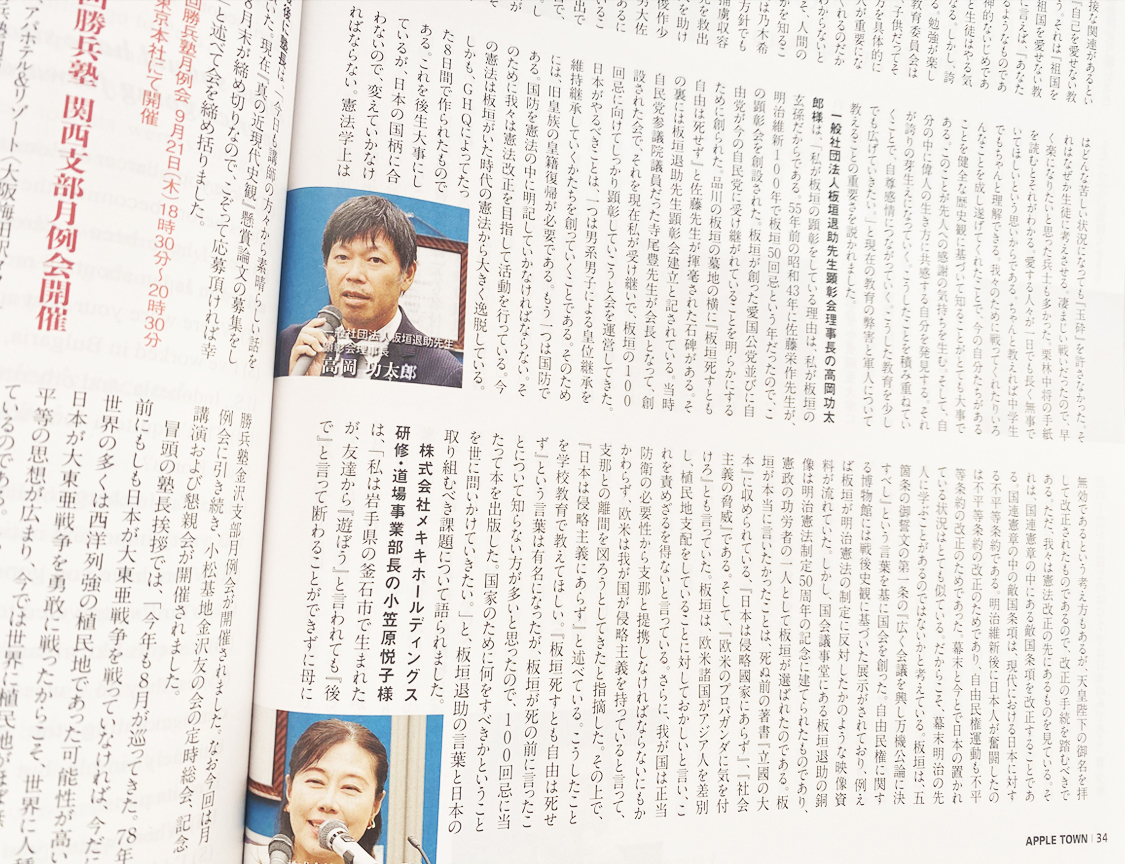 接な関連があるとい
『自己を愛せない教
う、それは『祖国を
祖国を愛せない教
るようなものであ
に言えば、『あなた
神的ないじめであ
と生徒はやる気
なる。しかし、誇
る。勉強が楽し
教育委員会は
子供だってそ
方を具体的に
人が重要にな
くれるのだか
はどんなに苦しい状況になっても『玉砕』を許さなかった。そ
ればなぜか生徒に考えさせる。凄まじい戦いだったので、早
く楽になりたいと思う兵士も多かった。栗林中将の手紙
を読むとそれがわかる。愛する人々が一日も長く無事で
いてほしいという思いからである。ちゃんと教えれば中学生
でもちゃんと理解できる。我々のために戦ってくれたりいろ
んなことを成し遂げてくれたことで、今の自分たちがある
ことを健全な歴史観に基づいて知ることがとても大事で
ある。このことが先人への感謝の気持ちを生む。そして、自
分の中に偉人の生き方に共感する自分を発見する。それ
が誇りの芽生えになっていく。こうしたことを積み重ねてい
くことで、自尊感情につながっていく。こうした教育を少し
でも広げていきたい。」と現在の教育の弊害と軍人について
教えることの重要さを説かれました。
一般社団法人板垣退助先生顕彰会理事長の高岡功太
郎様は、「私が板垣の顕彰をしている理由は、私が板垣の
玄孫だからである。55年前の昭和43年に佐藤栄作先生が、
明治維新100年で板垣50回忌という年だったので、こ
の顕彰会を創設された。板垣が創った愛国公党並びに自
由党が今の自民党に受け継がれていることを明らかにする
ために創られた。品川の板垣の墓地の横に『板垣死すとも
自由は死せず』と佐藤先生が揮毫された石碑がある。そ
の裏には板垣退助先生顕彰会建立と記されている。当時
自民党参議院議員だった寺尾豊先生が会長となって、創
設された会で、それを現在私が受け継いで、板垣の100
回忌に向けてしっかり顕彰していこうと会を運営してきた。
日本がやるべきことは、一つは男系男子による皇位継承を
維持継承していくかたちを創っていくことである。そのため
には、旧皇族の皇籍復帰が必要である。もう一つは国防で
ある。国防を憲法の中に明記していかなければならない。そ
のために我々は憲法改正を目指して活動を行っている。今
の憲法は板垣がいた時代の憲法から大きく逸脱している。
しかも、GHQによってたっ
た8日間で作られたもので
ある。これを後生大事にし
ているが、日本の国柄に合
わないので、変えていかなけ
ればならない。憲法学上は
一般社団法人板垣退助先生
顕彰会理事長
高岡 功太郎
無効であるという考え方もあるが、天皇陛下の御名を拝
して改正されたものであるので、改正の手続を踏むべきで
ある。ただ、我々は憲法改正の先にあるものも見ている。そ
れは、国連憲章の中にある敵国条項を改正することであ
る。国連憲章の中の敵国条項は、現代における日本に対す
る不平等条約である。明治維新後に日本人が奮闘したの
は不平等条約の改正のためであり、自由民権運動も不平
等条約の改正のためであった。幕末と今とで日本の置かれ
ている状況はとても似ている。だからこそ、幕末明治の先
人に学ぶことがあるのではないかと考えている。板垣は、五
箇条の御誓文の第一条の『広く会議を興し万機公論に決
すべし』という言葉を基に国会を創った。自由民権に関す
る博物館には戦後史観に基づいた展示がされており、例え
ば板垣が明治憲法の制定に反対したかのような映像資
料が流れていた。しかし、国会議事堂である板垣退助の銅
像は明治憲法制定50周年の記念に建てられたものであり、
憲政の功労者の一人として板垣が選ばれたのである。板
垣が本当に言いたかったことは、死ぬ前の著書『立國の大
本』に収められている、『日本は侵略國家にあらず』、『社会
主義の脅威』である。そして、『欧米のプロパガンダに気を付
けろ』とも言っていた。板垣は、欧米諸国がアジア人を差別
し、植民地支配をしていることに対しておかしいと言い、こ
れを責めざるを得ないと言っている。さらに、我が国は正当
防衛の必要性から支那と提携しなければならないにもか
かわらず、欧米は我が国が侵略主義を持っていると言って、
支那との離間を図ろうとしてきたと指摘した。その上で、
『日本は侵略主義にあらず』と述べている。こうしたこと
を学校教育で教えてほしい。『板垣死すとも自由は死せ
ず』という言葉は有名になったが、板垣が死の前に言ったこ
とについて知らない方が多いと思ったので、100回忌に当
たって本を出版した。国家のために何をすべきかということ
を世に問いかけていきたい。」と、板垣退助の言葉と日本の
取り組むべき課題について語られました。
株式会社メキキホールディングス
研修・道場事業部長の小笠原悦子様
は、「私は岩手県の釜石市で生まれた
が、友達から『遊ぼう』と言われても『後
で』と言って断わることができずに母に
APPLE TOWN | 34
は、「今日も講師の方々から素晴らしい話を
いた。現在『真の近現代史観』懸賞論文の募集をし
8月末が締め切りなので、こぞって応募頂ければ幸
」と述べて会を締め括りました。
回勝兵塾月例会 9月21日(木)18時30分〜20時30分
東京本社にて開催
勝兵塾 関西支部月例会開催
アパホテル&リゾート〈大阪梅田駅タ
勝兵塾金沢支部月例会が開催されました。なお今回は月
例会に引き続き、小松基地金沢友の会の定時総会、記念
講演および懇親会が開催されました。
冒頭の塾長挨拶では、「今年も8月が巡ってきた。78年
前にもしも日本が大東亜戦争を戦っていなければ、今だに
世界の多くは西洋列強の植民地であった可能性が高い
日本が大東亜戦争を勇敢に戦ったからこそ、世界に人種
平等の思想が広まり、今では世界に植民地がほぼ
ているのである。